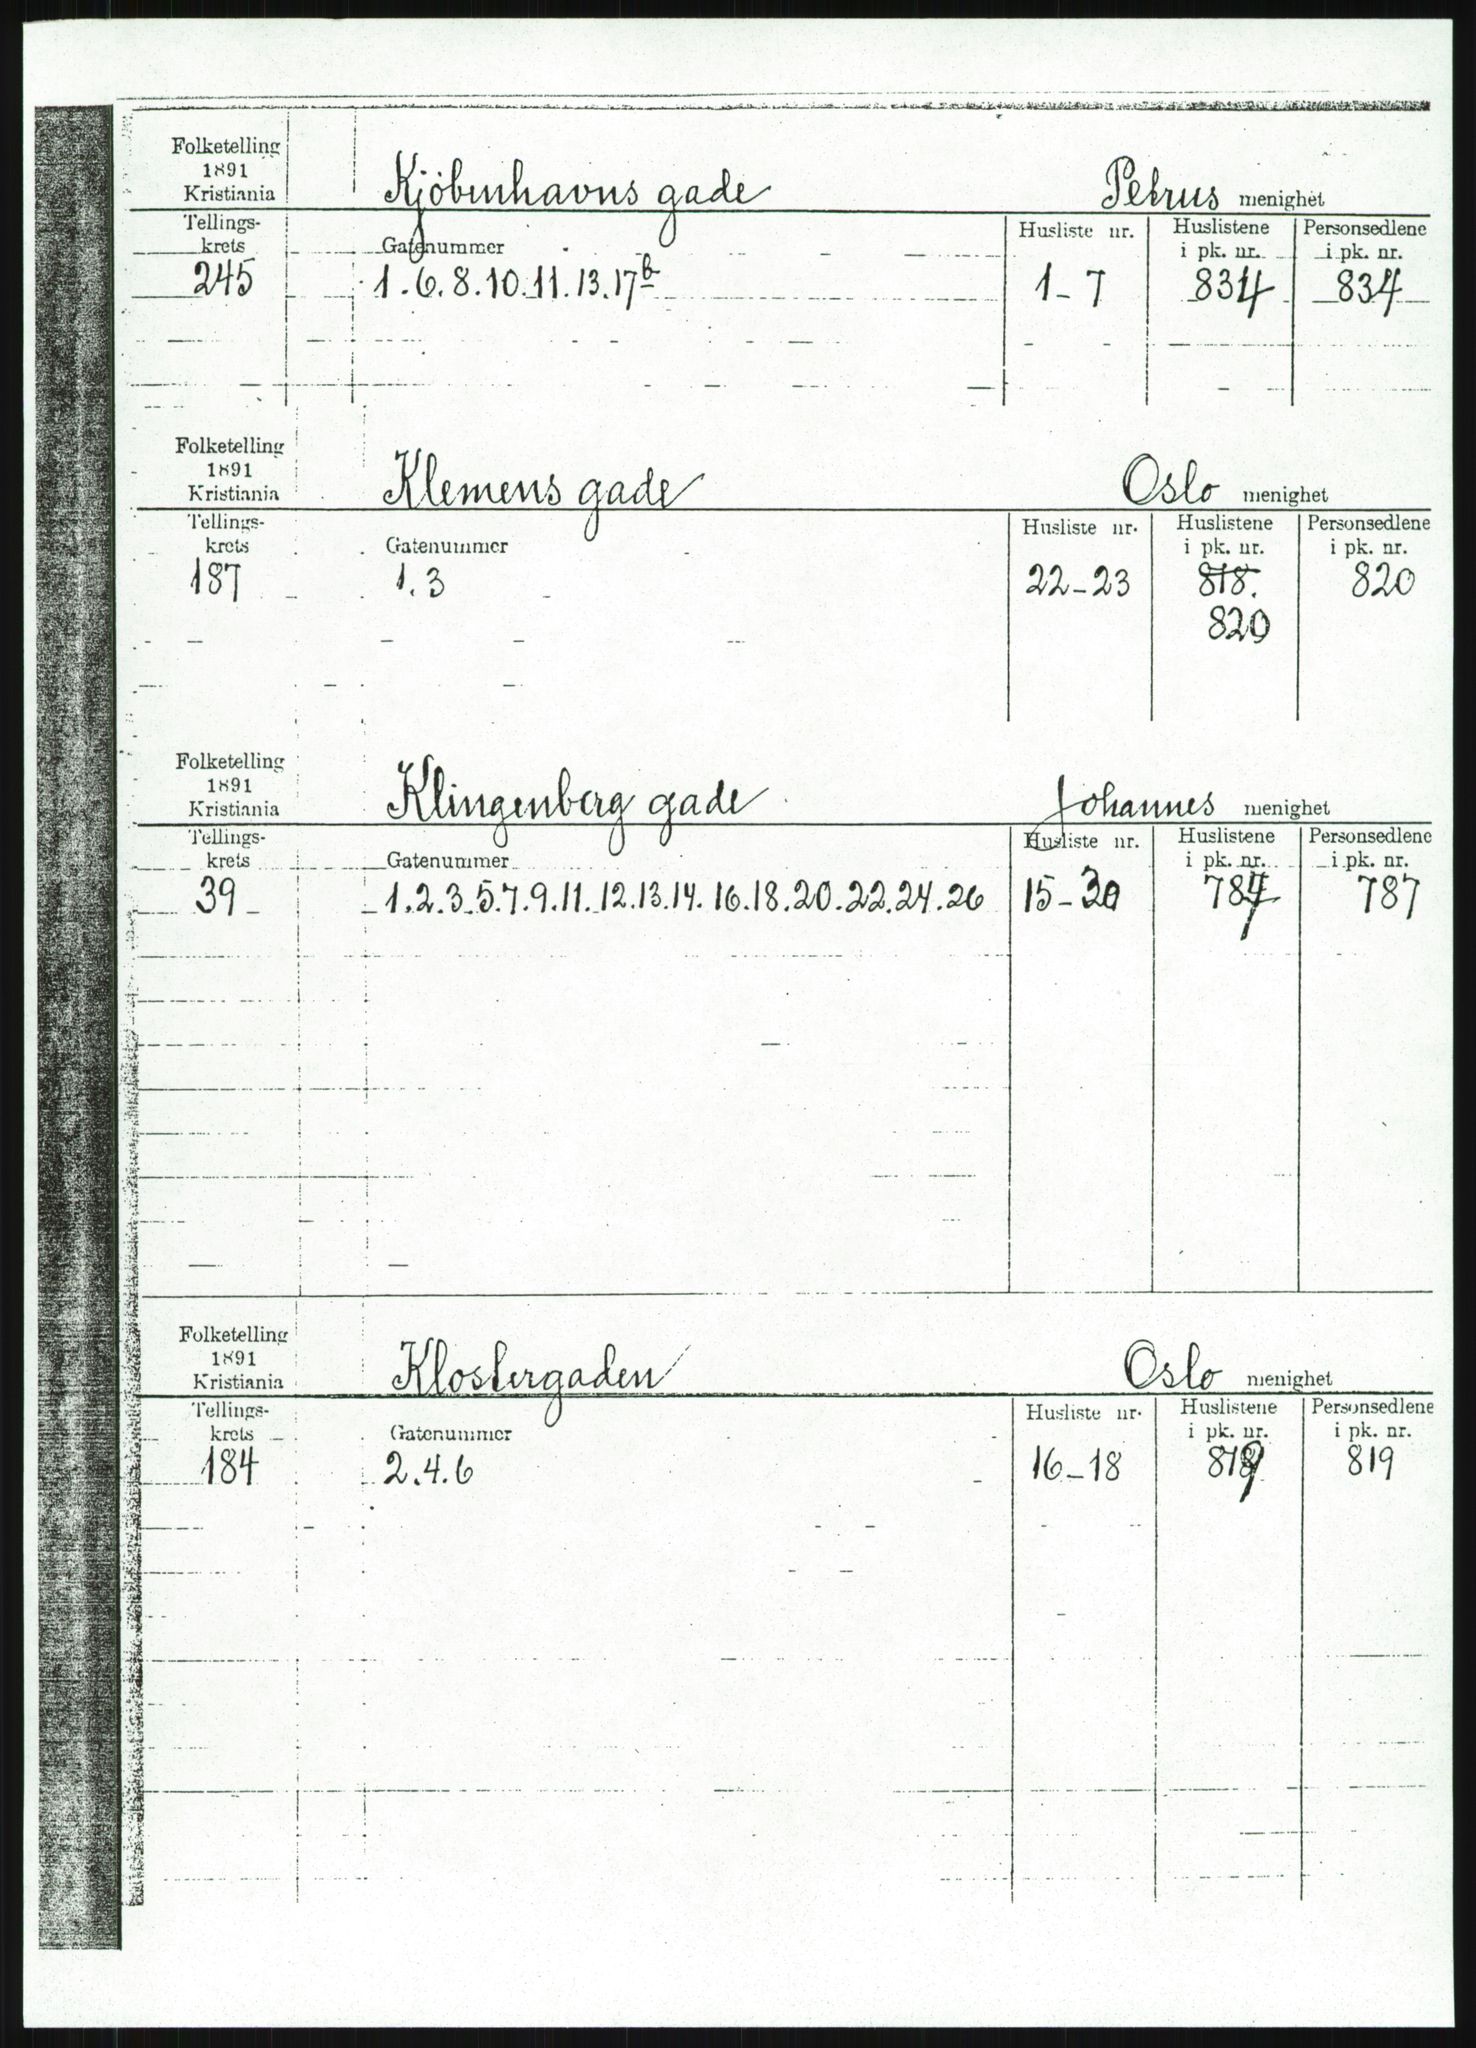 Folketelling
1891
Kristiania
Kjöbenhavns gade
Petrus menighet
Tellings-
krets
Gatenummer
Husliste nr.
Huslistene
i pk. nr.
Personsedlene
i pk. nr.
245
1. 6. 8. 10. 11. 13. 17b
1-7
834
834
Folketelling
1891
Kristiania
Klemens gade
Oslo menighet
Tellings-
krets
Gatenummer
Husliste nr.
Huslistene
i pk. nr.
Personsedlene
i pk. nr.
187
1. 3
22-23
818.
820
820
Folketelling
1891
Kristiania
Klingenberg gade
Johannes menighet
Tellings-
krets
Gatenummer
Husliste nr.
Huslistene
i pk. nr.
Personsedlene
i pk. nr.
39
1. 2. 3. 5. 7. 9. 11. 12. 13. 14. 16. 18. 20. 22. 24. 26
15-30
787
787
Folketelling
1891
Kristiania
Klostergaden
Oslo menighet
Tellings-
krets
Gatenummer
Husliste nr.
Huslistene
i pk. nr.
Personsedlene
i pk. nr.
184
2. 4. 6
16-18
819
819